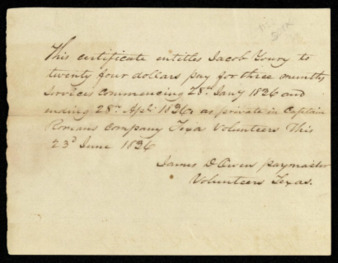 This certificate entitles Jacob to
twenty four dollars pay for three months
services commencing 28th Jany 1836 and
ending 28th Apl 1836 as private in Captain
Romans Company Texas Volunteers This
23d June 1836
James D Owen paymaster
Volunteers Texas.